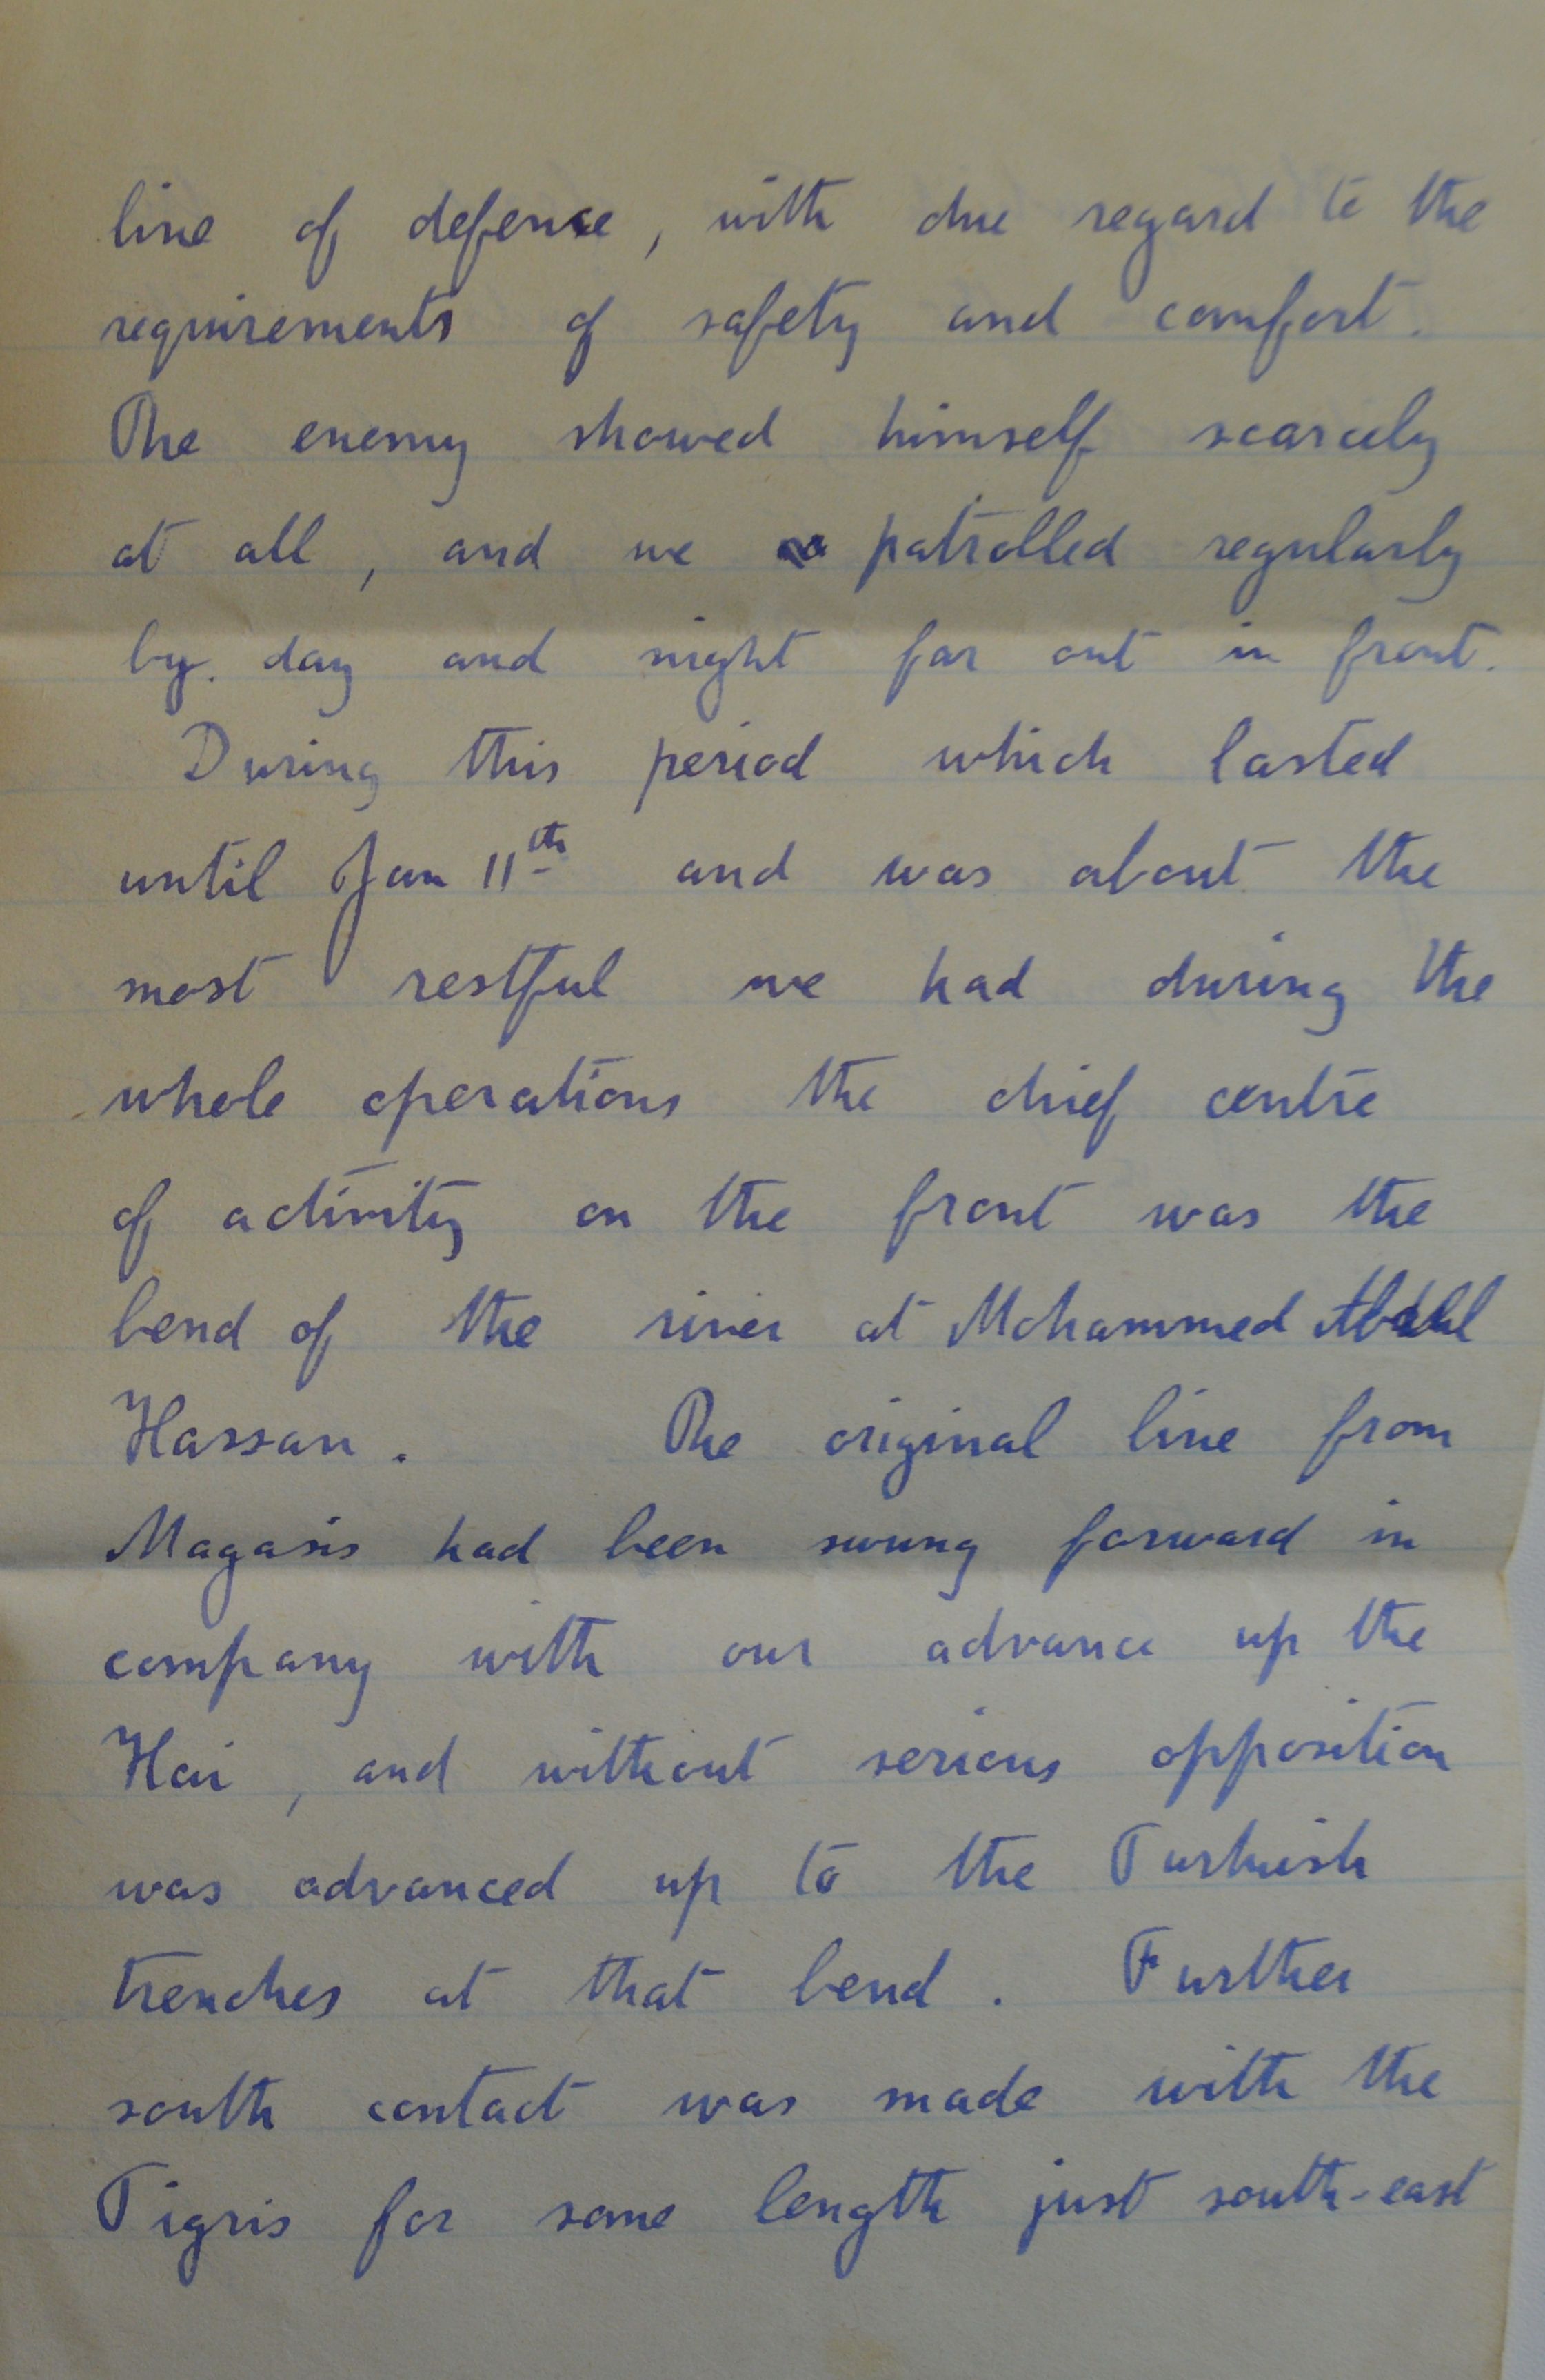 line of defence, with due regard to the
requirements of safety and comfort.
The enemy showed himself scarcely
at all, and we patrolled regularly
by day and night far out in front.
During this period which lasted
until Jan 11th and was about the
most restful we had during the
whole operations the chief centre
of activity on the front was the
bend of the river at Mohammed Abdul
Hassan. The original line from
Magasis had been swung forward in
company with our advance up the
Hai, and without serious opposition
was advanced up to the Turkish
trenches at that bend. Further
south contact was made with the
Tigris for some length just south-east